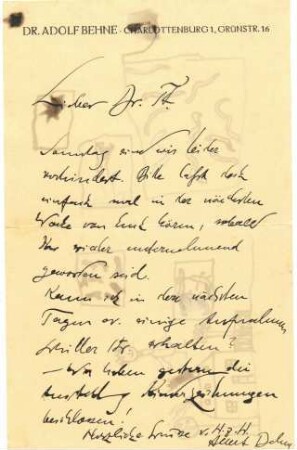 DR. ADOLF BEHNE · CHARLOTTENBURG 1, GRÜNSTR. 16
Lieber Dr. H.
Sonntag sind wir leider
verhindert. Bitte laßt doch
einfach mal in der nächsten
Woche von Euch hören, sobald
Ihr wieder unternehmend
geworden seid.
Kann ich in den nächsten
Tagen ev. einige Aufnahmen
erhalten?
— Wir haben gestern die
Ausstellg Kinderzeichnungen
beschlossen!
Herzliche Grüße v. H. z. H.